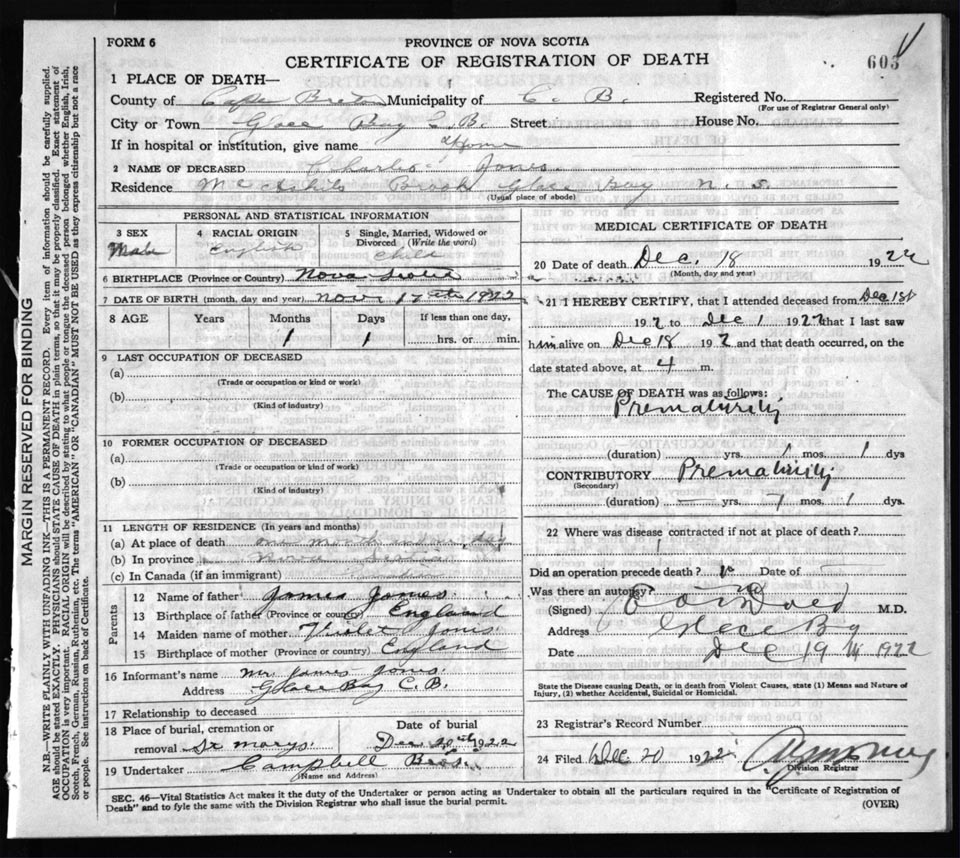 FORM 6
PROVINCE OF NOVA SCOTIA
CERTIFICATE OF REGISTRATION OF DEATH
603
1 PLACE OF DEATH—
County of Cape Breton Municipality of C. B. Registered No.
(For use of Registrar General only)
City or Town Glace Bay C. B. Street House No.
If in hospital or institution, give name at Home
2 NAME OF DECEASED Charles Jones.
Residence Brook Glace Bay N. S.
(Usual place of abode)
PERSONAL AND STATISTICAL INFORMATION
3 SEX 4 RACIAL ORIGIN 5 Single, Married, Widowed or Divorced (Write the word)
Male English child
6 BIRTHPLACE (Province or Country) Nova Scotia
7 DATE OF BIRTH (month, day and year) Nov 17th 1922
8 AGE Years Months Days If less than one day,
1 1 hrs. or min.
9 LAST OCCUPATION OF DECEASED
(a)
(Trade or occupation or kind or work)
(b)
(Kind of industry)
10 FORMER OCCUPATION OF DECEASED
(a)
(Trade or occupation or kind of work)
(b)
(Kind of industry)
11 LENGTH OF RESIDENCE (In years and months)
(a) At place of death one month
(b) In province Nova Scotia
(c) In Canada (if an immigrant)
Parents
12 Name of father James Jones.
13 Birthplace of father (Province or country) England
14 Maiden name of mother Violet Jones
15 Birthplace of mother (Province or country) England
16 Informant's name Mr. James Jones.
Address Glace Bay C. B.
17 Relationship to deceased
18 Place of burial, cremation or Date of burial
removal St Marys. Dec 20th 1922
19 Undertaker Campbell Bros.
(Name and Address)
MEDICAL CERTIFICATE OF DEATH
20 Date of death Dec. 18 1922
(Month, day and year)
21 I HEREBY CERTIFY, that I attended deceased from Dec 1st
192 to Dec 1 1922 that I last saw
him alive on Dec 18 192 and that death occurred, on the
date stated above, at 4 m.
The CAUSE OF DEATH was as follows:
Prematurity
(duration) yrs. 1 mos. 1 dys
CONTRIBUTORY Prematurity
(Secondary)
(duration) yrs. 1 mos. 1 dys.
22 Where was disease contracted if not at place of death?
Did an operation precede death? no Date of
Was there an autopsy? no
(Signed) M.D.
Address Glace Bay
Date Dec 19 1922
State the Disease causing Death, or in death from Violent Causes, state (1) Means and Nature of
Injury, (2) whether Accidental, Suicidal or Homicidal.
23 Registrar's Record Number
24 Filed Dec 20 1922
Division Registrar
SEC. 46—Vital Statistics Act makes it the duty of the Undertaker or person acting as Undertaker to obtain all the particulars required in the "Certificate of Registration of
Death" and to fyle the same with the Division Registrar who shall issue the burial permit. (OVER)
MARGIN RESERVED FOR BINDING
N.B.—WRITE PLAINLY WITH UNFADING INK—THIS IS A PERMANENT RECORD. Every item of information should be carefully supplied.
AGE should be stated EXACTLY. PHYSICIANS should STATE CAUSE OF DEATH in plain terms, so that it may be properly classified. Exact statement of
OCCUPATION is very important. RACIAL ORIGIN will be described by stating to what people or tongue the deceased person belonged whether English, Irish,
Scotch, French, German, Russian, Ruthenian, etc. The terms "AMERICAN" OR "CANADIAN" MUST NOT BE USED as they express citizenship but not a race
or people. See instructions on back of Certificate.